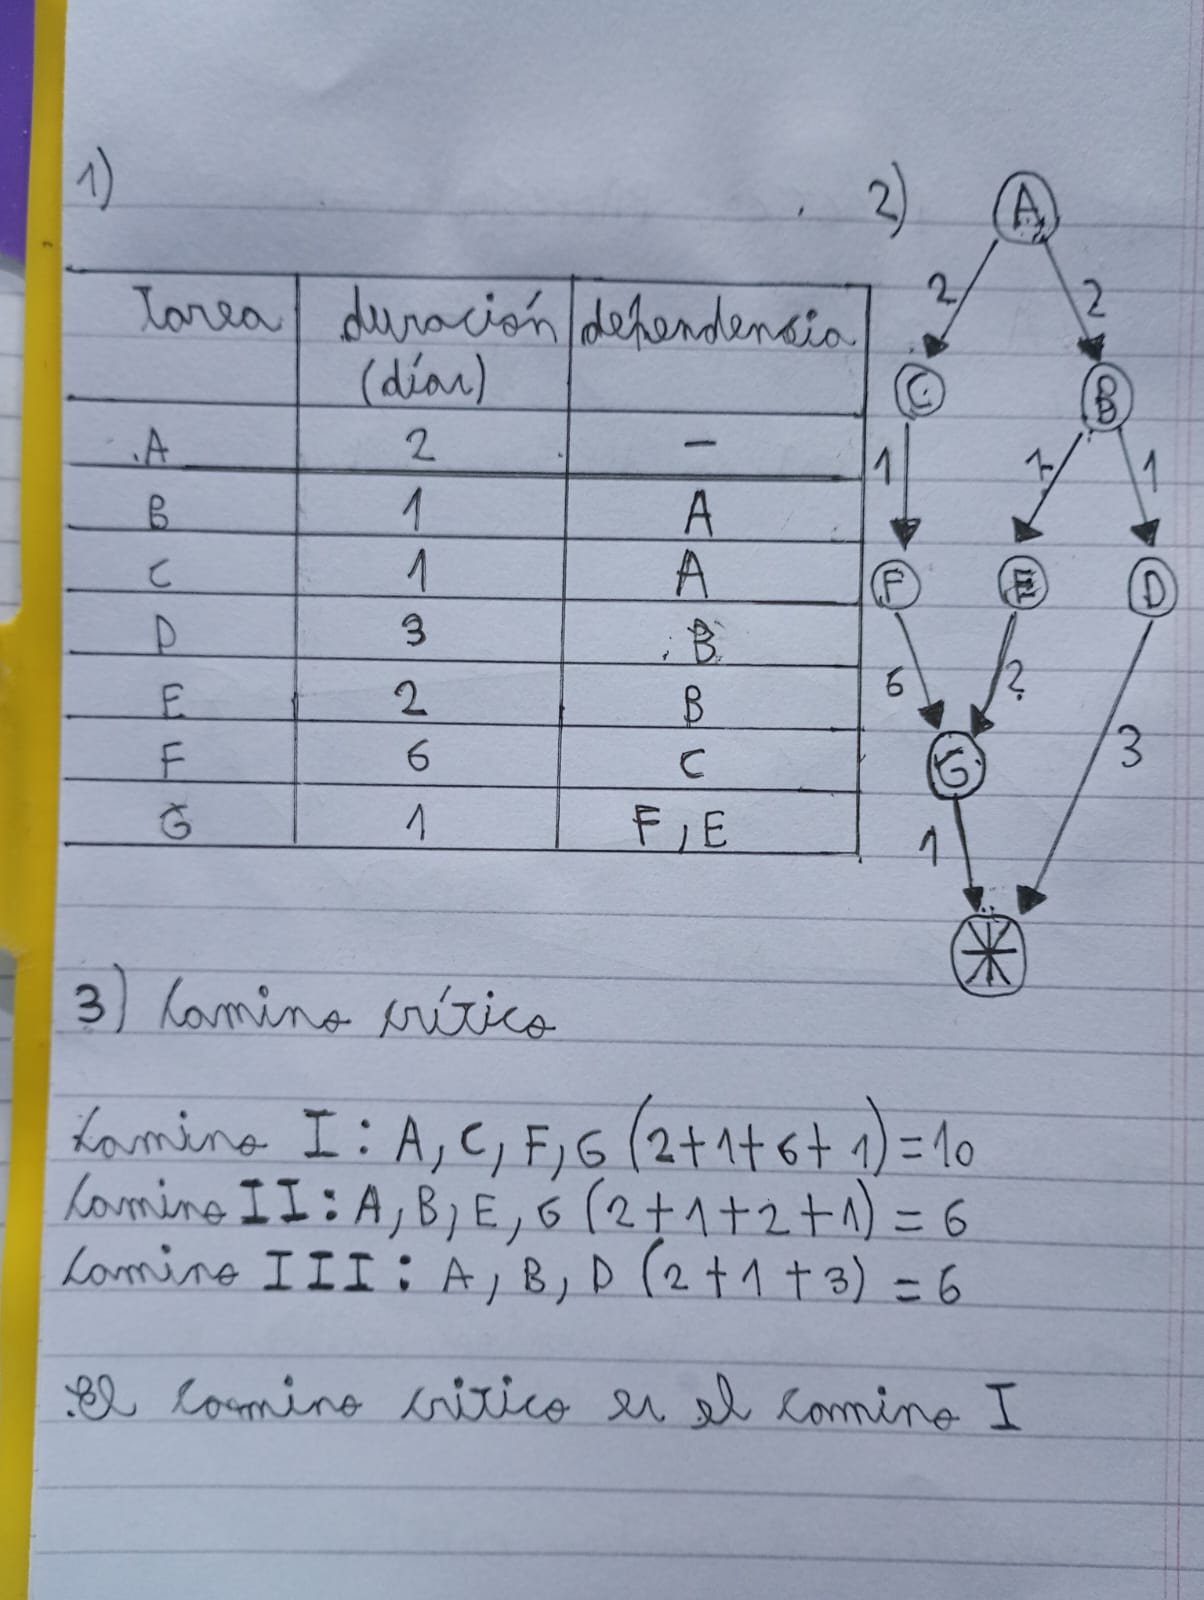 1)
Tarea duración dependencia
(días)
A 2 —
B 1 A
C 1 A
D 3 B
E 2 B
F 6 C
G 1 F, E
2)
A
2 2
C B
1 1 1
F E D
6 2 3
G
1
3) Camino crítico
Camino I: A, C, F, G (2+1+6+1)=10
Camino II: A, B, E, G (2+1+2+1) = 6
Camino III: A, B, D (2+1+3) = 6
El camino critico es el camino I